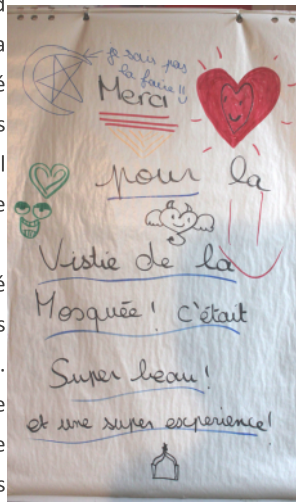 je sais pas
la faire !!
Merci
pour la
Vistie de la
Mosquée ! c'était
Super beau !
et une super experience !